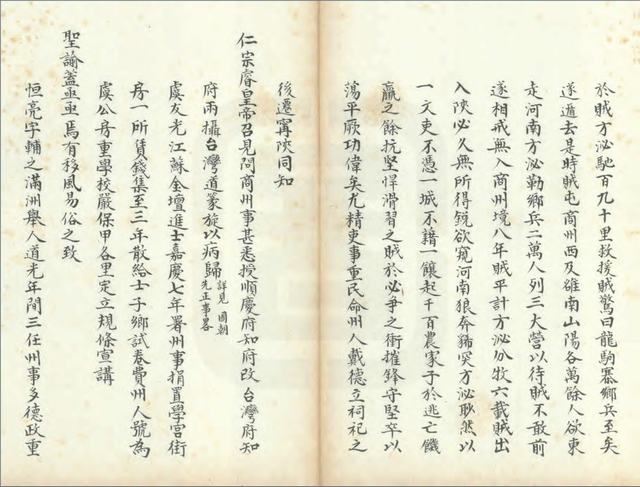 於賊方泌馳百九十里救援賊驚曰龍駒寨鄉兵至矣
遂遁去是時賊屯商州西及雒南山陽各萬餘人欲東
走河南方泌勒鄉兵二萬人列三大營以待賊不敢前
遂相戒無入商州境八年賊平計方泌分牧六載賊出
入陝必久無所得銳欲窺河南狼奔豨突方泌耿然以
一文吏不憑一城不藉一餉起千百農家子於逃亡饑
羸之餘抗堅悍滑習之賊於必爭之衝摧鋒守堅卒以
蕩平厥功偉矣尤精吏事重民命州人戴德立祠祀之
後遷寗陝同知
仁宗睿皇帝召見問商州事甚悉授順慶府知府改台灣府知
府兩攝台灣道篆旋以病歸 詳見國朝先正事畧
虞友光江蘇金壇進士嘉慶七年署州事捐置學宮街
房一所賃錢集至三年散給士子鄉試卷費州人號為
虞公房重學校嚴保甲各里定立規條宣講
聖諭蓋亟亟焉有移風易俗之致
恒亮字輔之滿洲舉人道光年間三任州事多德政重